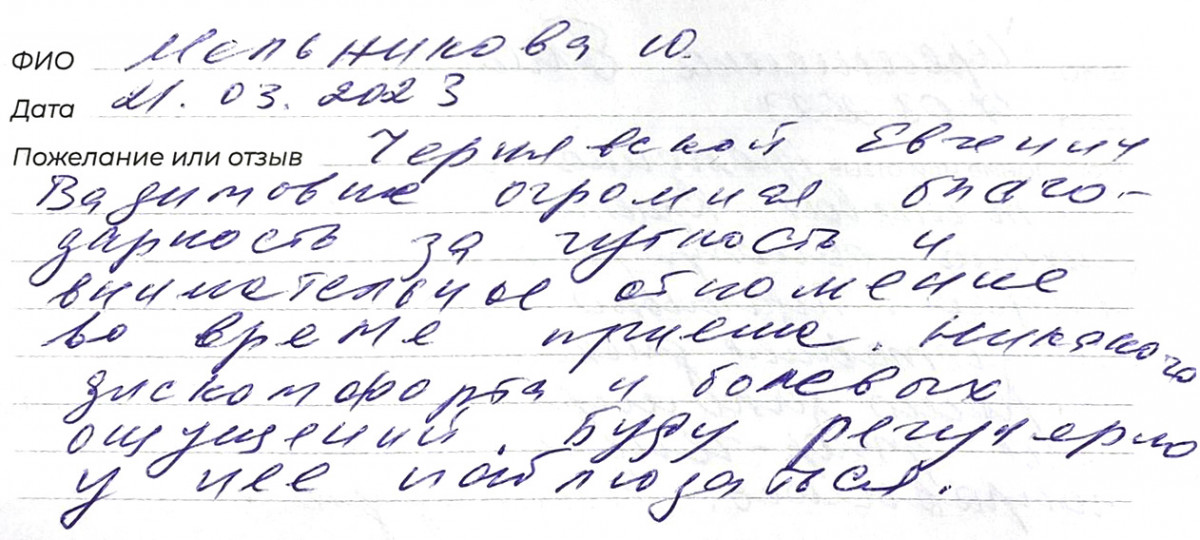 ФИО Мельникова Ю.
Дата 21.03.2023
Пожелание или отзыв Чернявской Евгении
Вадимовне огромная благо-
дарность за чуткость и
внимательное отношение
во время приема. Никакого
дискомфорта и болевых
ощущений. Буду регулярно
у нее наблюдаться.